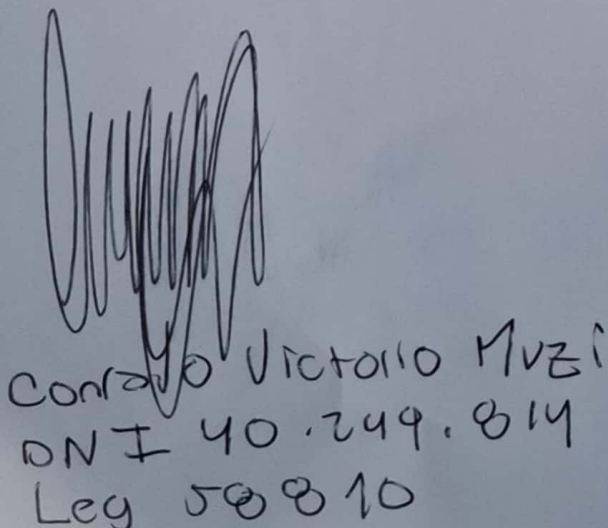 Conrado Victorio Muzi
DNI 40.249.814
Leg 58810